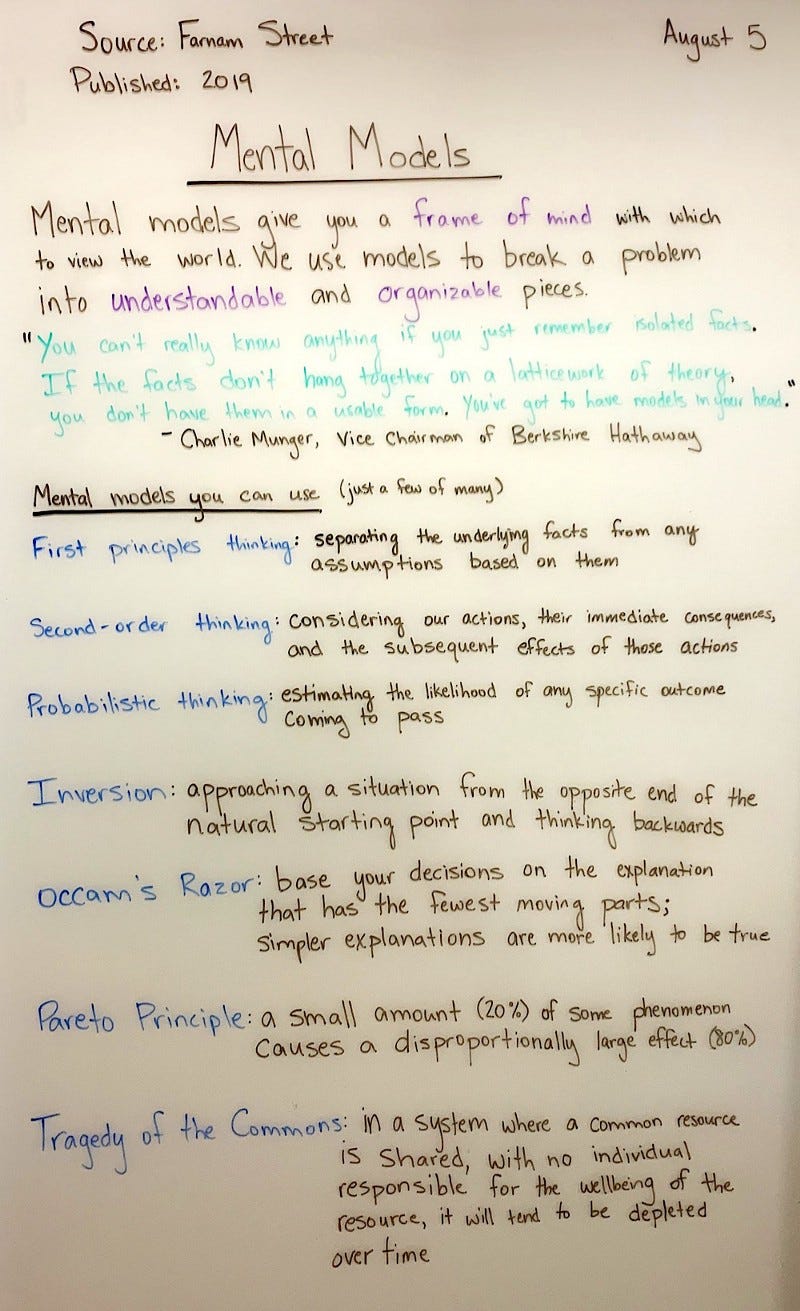 Source: Farnam Street
August 5
Published: 2019
Mental Models
Mental models give you a frame of mind with which
to view the world. We use models to break a problem
into understandable and organizable pieces.
"You can't really know anything if you just remember isolated facts.
If the facts don't hang together on a latticework of theory,
you don't have them in a usable form. You've got to have models in your head."
- Charlie Munger, Vice Chairman of Berkshire Hathaway
Mental models you can use (just a few of many)
First principles thinking: separating the underlying facts from any
assumptions based on them
Second-order thinking: considering our actions, their immediate consequences,
and the subsequent effects of those actions
Probabilistic thinking: estimating the likelihood of any specific outcome
coming to pass
Inversion: approaching a situation from the opposite end of the
natural starting point and thinking backwards
Occam's Razor: base your decisions on the explanation
that has the fewest moving parts;
simpler explanations are more likely to be true
Pareto Principle: a small amount (20%) of some phenomenon
causes a disproportionally large effect (80%)
Tragedy of the Commons: in a system where a common resource
is shared, with no individual
responsible for the wellbeing of the
resource, it will tend to be depleted
over time